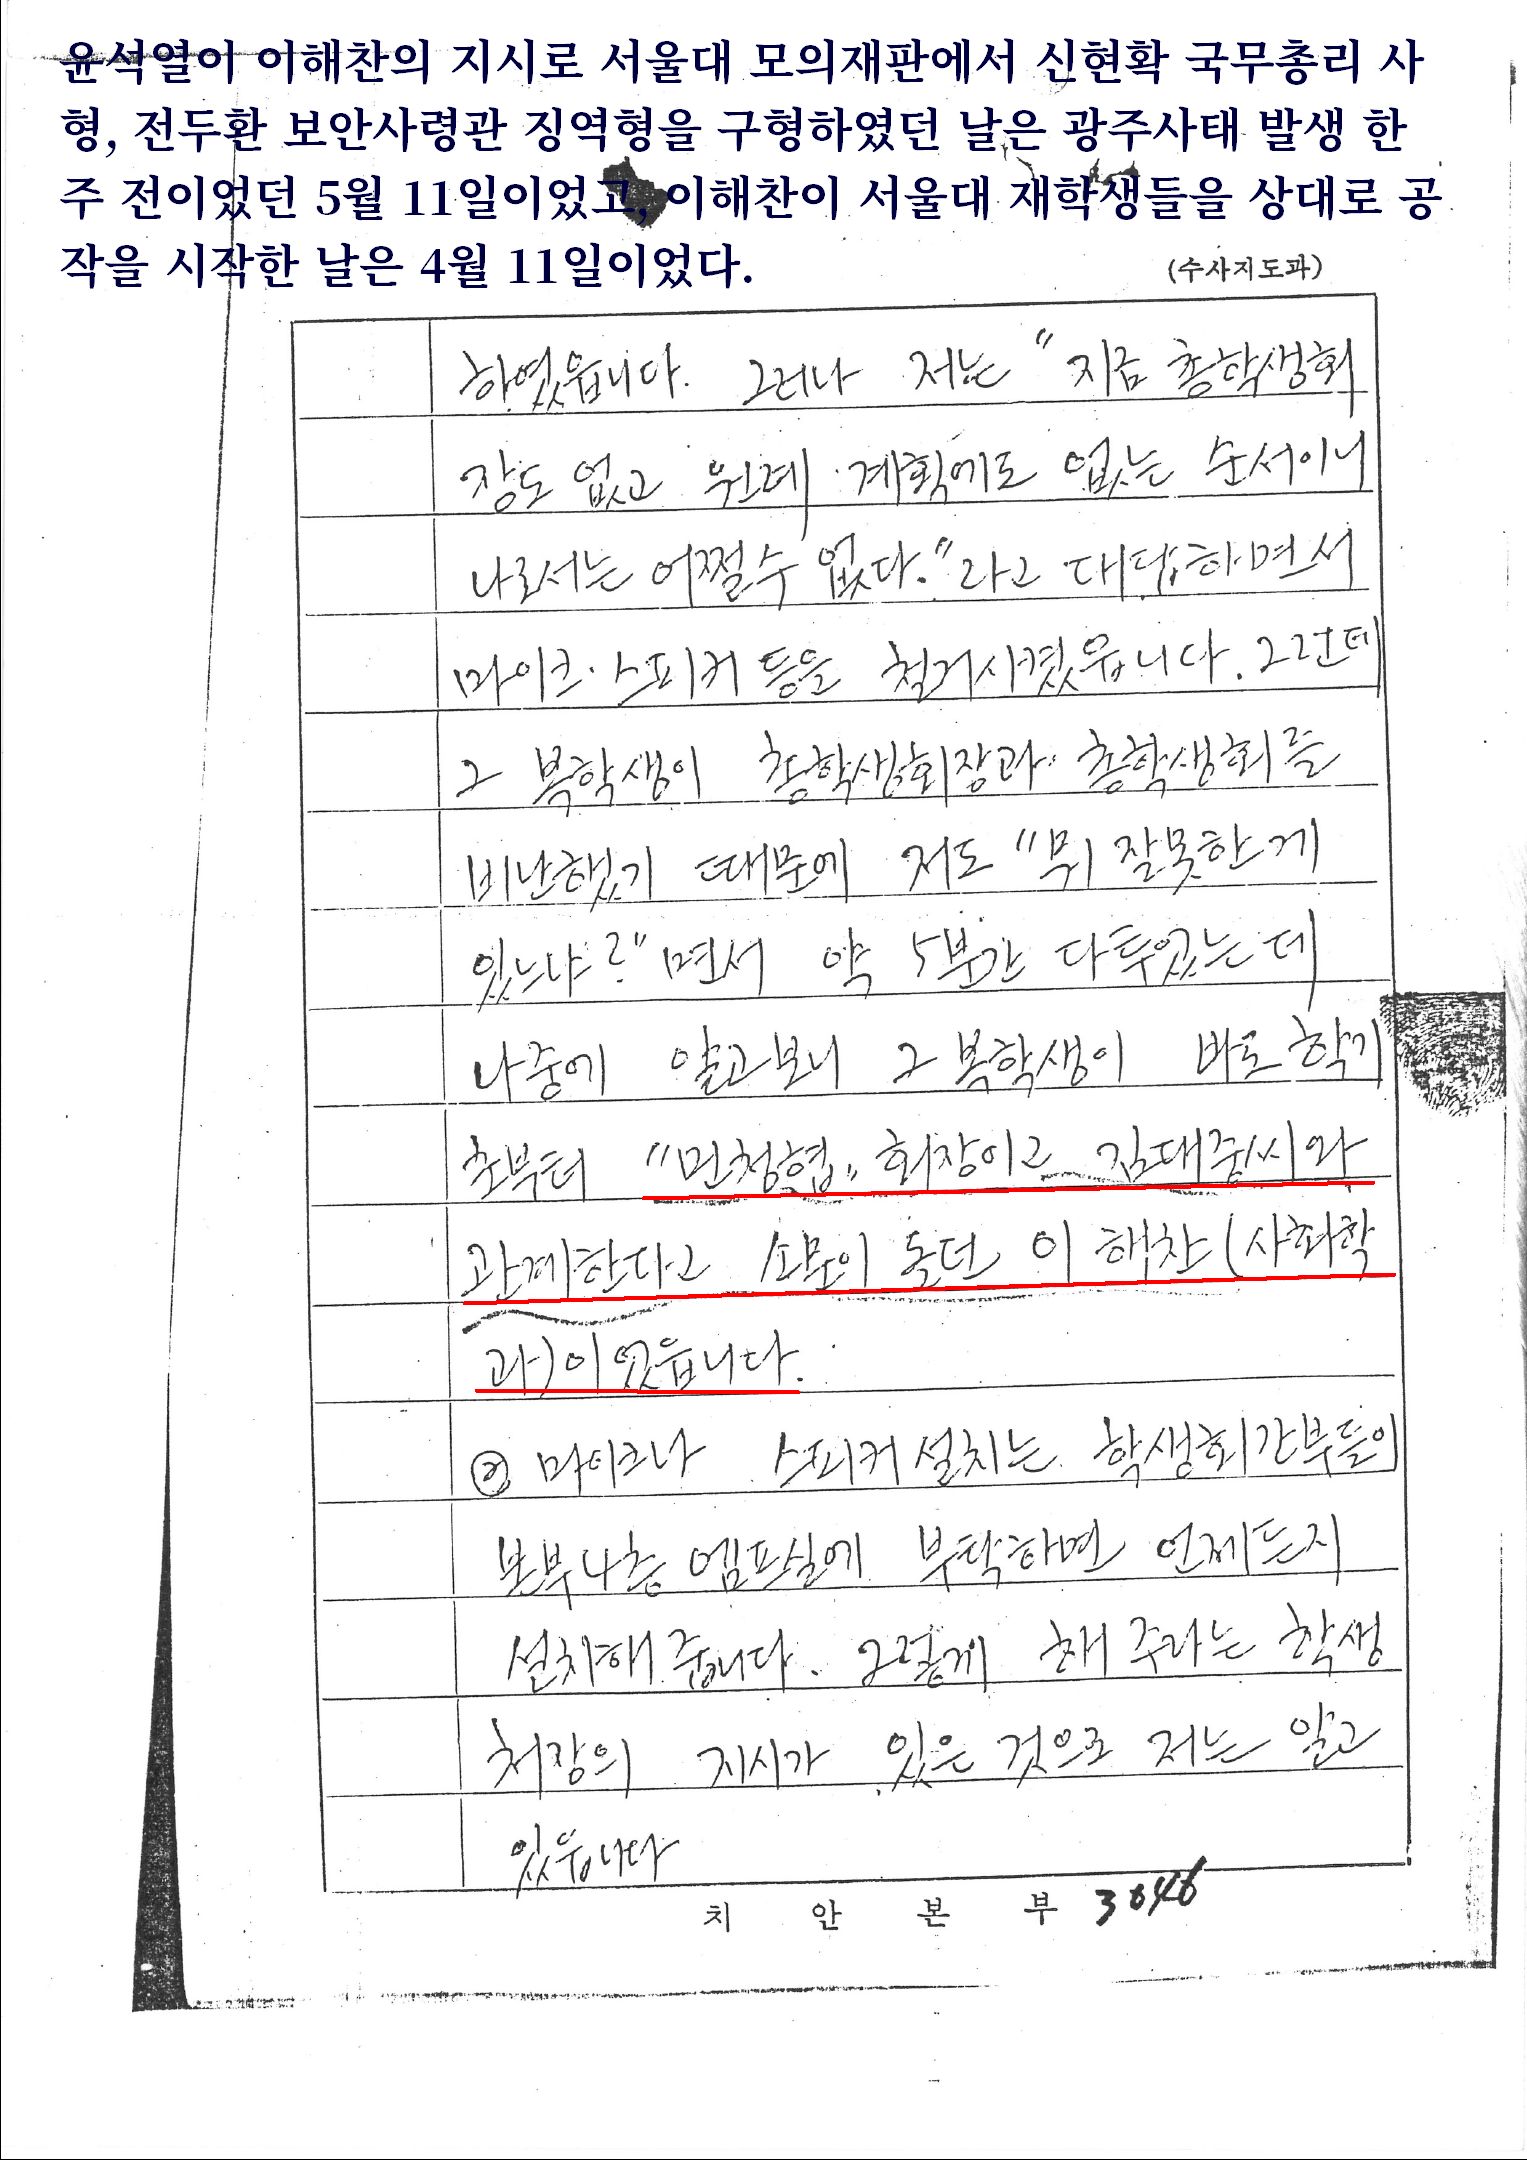 윤석열이 이해찬의 지시로 서울대 모의재판에서 신현확 국무총리 사
형, 전두환 보안사령관 징역형을 구형하였던 날은 광주사태 발생 한
주 전이었던 5월 11일이었고, 이해찬이 서울대 재학생들을 상대로 공
작을 시작한 날은 4월 11일이었다.
(수사지도과)
하였읍니다. 그러나 저는 "지금 총학생회
장도 없고 원래 계획에도 없는 순서이니
나로서는 어쩔수 없다."라고 대답하면서
마이크·스피커 등을 철거시켰읍니다. 그런데
그 복학생이 총학생회장과 총학생회를
비난했기 때문에 저도 "뭐 잘못한게
있느냐?"면서 약 5분간 다투었는데
나중에 알고보니 그 복학생이 바로 학기
초부터 "민청협" 회장이고 김대중씨와
관계한다고 소문이 돌던 이해찬(사회학
과)이었읍니다.
② 마이크나 스피커 설치는 학생회간부들이
본부4층 엠프실에 부탁하면 언제든지
설치해 줍니다. 그렇게 해 주라는 학생
처장의 지시가 있은 것으로 저는 알고
있읍니다
치 안 본 부 3046